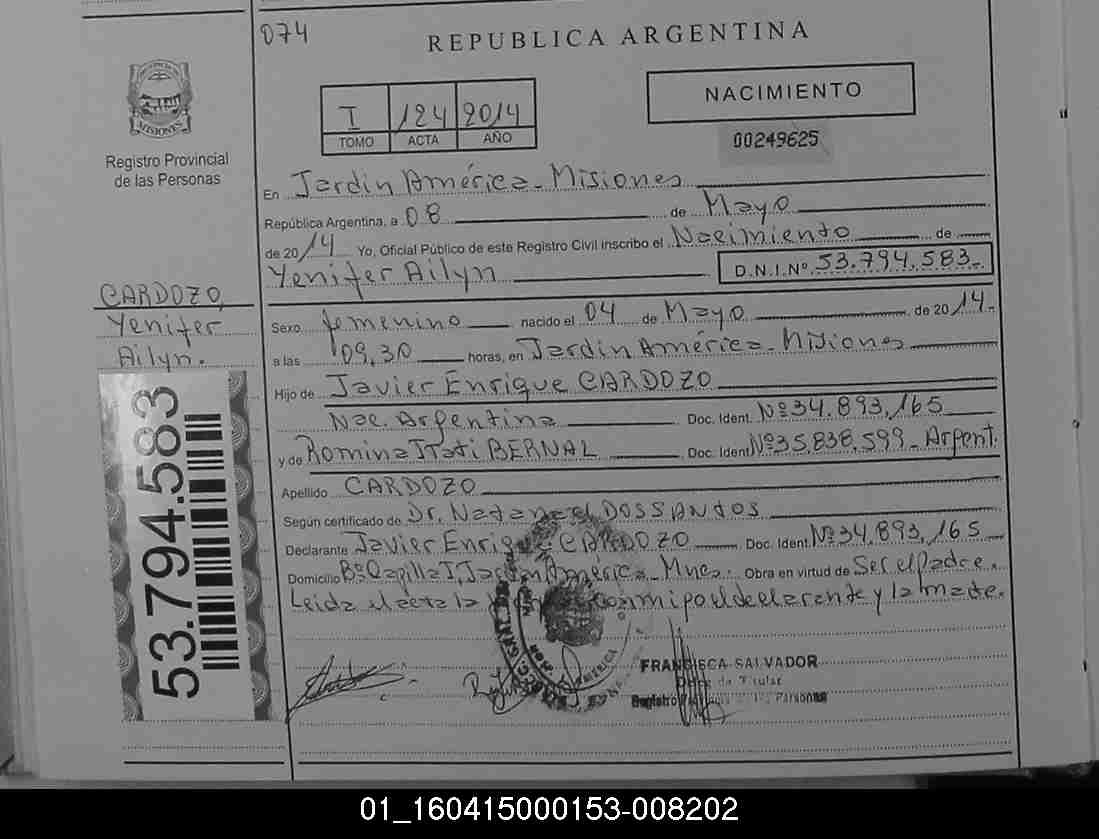 074
REPUBLICA ARGENTINA
PROVINCIA DE
MISIONES
Registro Provincial
de las Personas
I 124 2014
TOMO ACTA AÑO
NACIMIENTO
00249625
En Jardin América - Misiones
República Argentina, a 08 de Mayo
de 2014 Yo, Oficial Público de este Registro Civil inscribo el Nacimiento de
Yenifer Ailyn D.N.I.Nº 53.794.583-
CARDOZO,
Yenifer
Ailyn.
Sexo femenino nacido el 04 de Mayo de 2014-
a las 09,30 horas, en Jardin América - Misiones
Hijo de Javier Enrique CARDOZO
Nac. Argentina Doc. Ident. Nº 34.893,165
y de Romina Itati BERNAL Doc. Ident. Nº 35,838,599- Argent.
Apellido CARDOZO
Según certificado de Dr. Natanael DOSSANTOS
Declarante Javier Enrique CARDOZO Doc. Ident. Nº 34,893,165
Domicilio Bº Capilla I, Jardin America - Mnes. Obra en virtud de Ser el Padre.
Leida el acta la conmigo el declarante y la madre.
53.794.583
AMERICA
FRANCISCA SALVADOR
Titular
Registro Personas
01_160415000153-008202